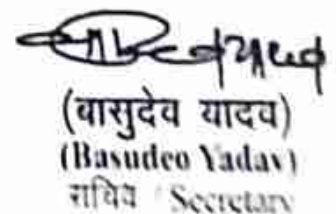 (वासुदेव यादव)
(Basudeo Yadav)
सचिव / Secretary